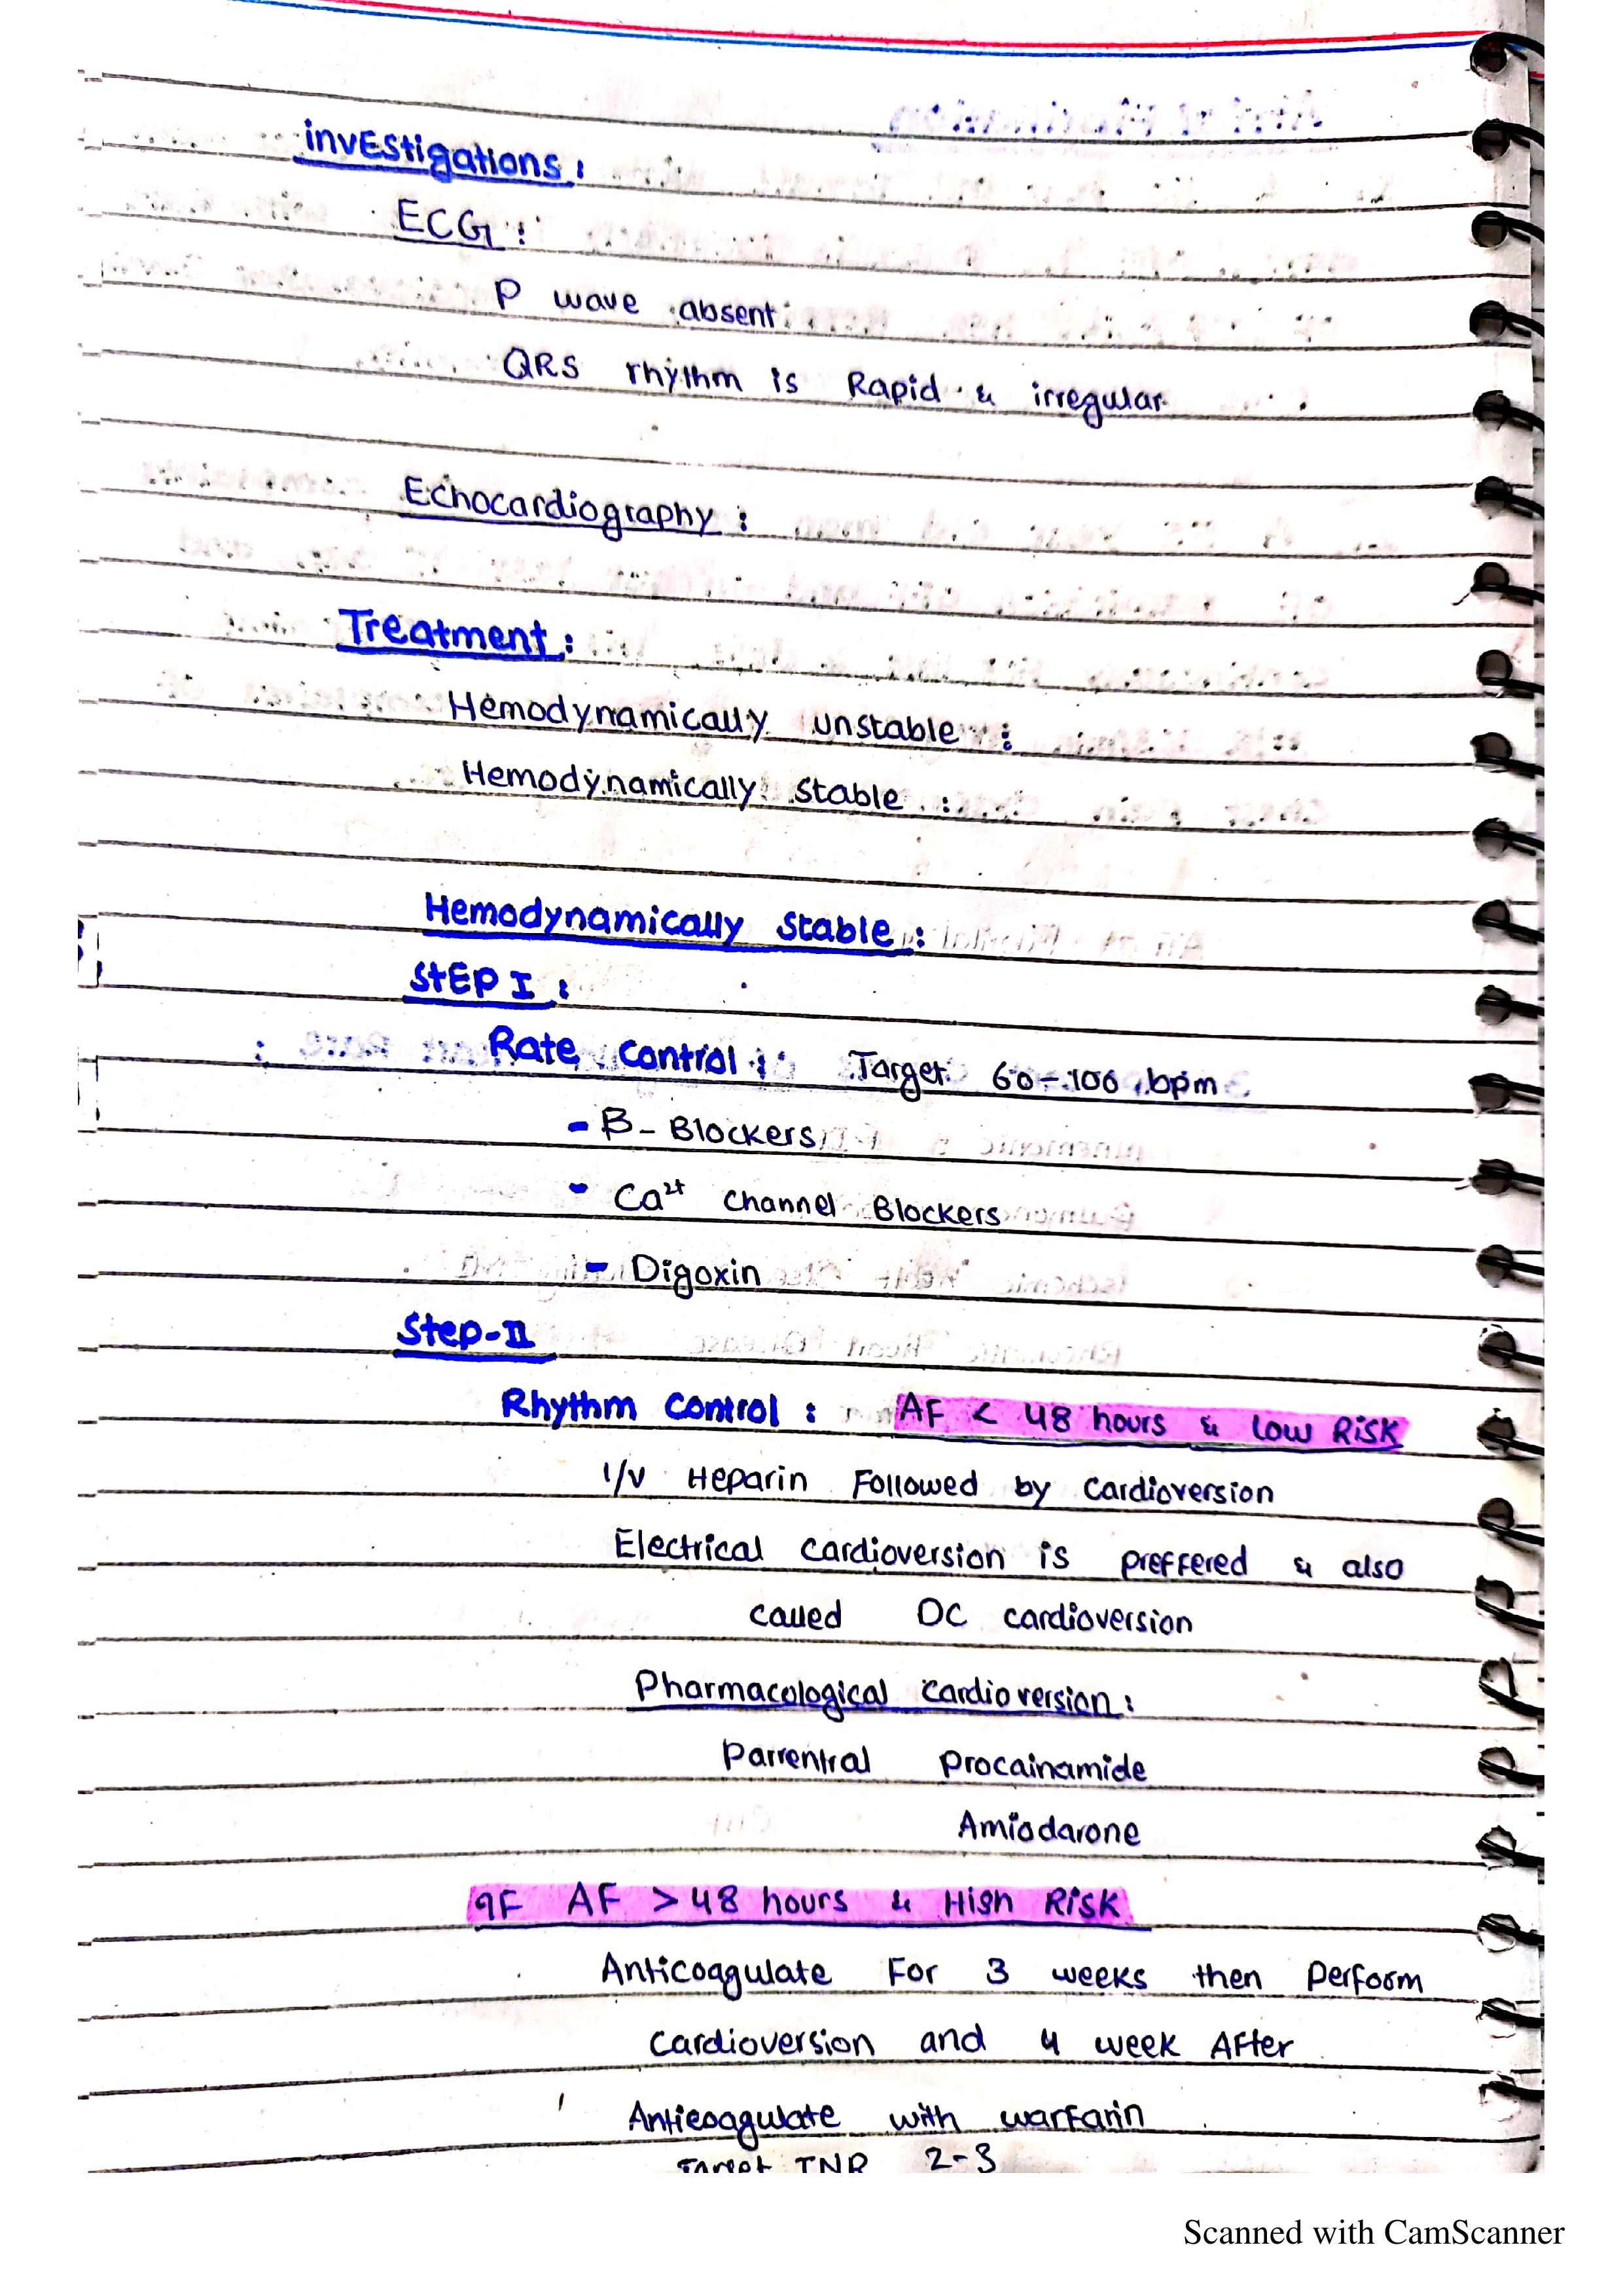 invEstigations :
ECG :
P wave absent
QRS rhythm is Rapid & irregular
Echocardiography :
Treatment :
Hemodynamically unstable :
Hemodynamically stable :
Hemodynamically stable :
StEP I :
Rate control : Target 60-100 bpm
- B- Blockers
- Ca2+ channel Blockers
- Digoxin
Step-II
Rhythm control : AF < 48 hours & Low RiSK
I/V Heparin Followed by cardioversion
Electrical cardioversion is preffered & also
called DC cardioversion
Pharmacological cardioversion :
Parrentral Procainamide
Amiodarone
IF AF > 48 hours & High RiSK
Anticoagulate For 3 weeks then perform
cardioversion and 4 week After
Anticoagulate with warfarin
Target INR 2-3
Scanned with CamScanner